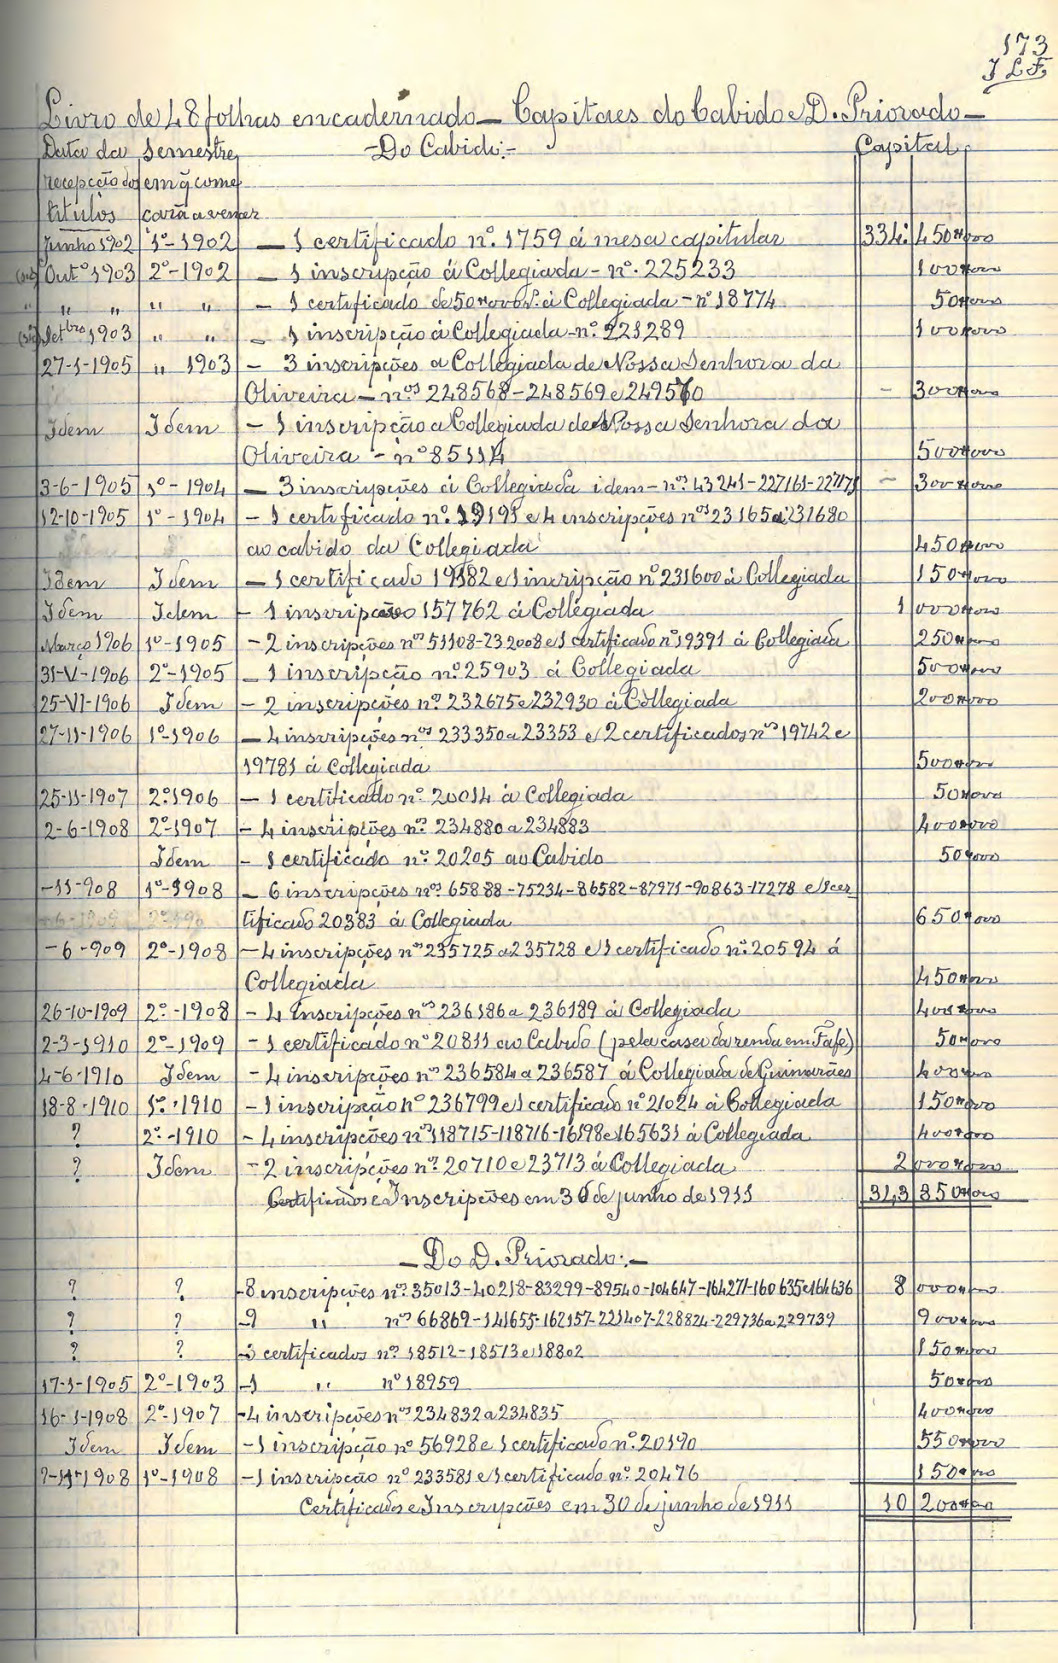 173
J L F.
Livro de 48 folhas encadernado — Capitaes do Cabido e D. Priorado —
Data da Semestre — Do Cabido:- Capital
recepção dos em q̃ come
titulos cará a vencer
Junho 1902 1º-1902 — 1 certificado nº. 1759 á mesa capitular 334: 450#000
(sic) Outº 1903 2º-1902 — 1 inscripção á Collegiada - nº. 225233 100#000
" " " " " - 1 certificado de 50#000 á Collegiada - nº 18774 50#000
(sic) Setbro 1903 " " - 1 inscripção á Collegiada - nº. 221289 100#000
27-1-1905 " 1903 - 3 inscripções a Collegiada de Nossa Senhora da
Oliveira - nos 248568-248569 e 249570 - 300#000
Idem Idem - 1 inscripção a Collegiada de Nossa Senhora da
Oliveira - nº 85114 500#000
3-6-1905 1º-1904 — 3 inscripções á Collegiada idem - nos. 43241-227161-227171 - 300#000
12-10-1905 1º-1904 - 1 certificado nº. 19191 e 4 inscripções nos 23165 a 231680
ao cabido da Collegiada 450#000
Idem Idem - 1 certificado 19182 e 1 incripção nº 231600 á Collegiada 150#000
Idem Idem - 1 inscripção 157762 á Collegiada 1 000#000
Março 1906 1º-1905 - 2 inscripções nos 51108-232008 e 1 certificado nº 19391 á Collegiada 250#000
31-V-1906 2º-1905 - 1 inscripção nº. 25903 á Collegiada 500#000
25-VI-1906 Idem - 2 inscripções nos. 232675 e 232930 á Collegiada 200#000
27-11-1906 1º-1906 - 4 inscripções nos 233350 a 23353 e 2 certificados nos 19742 e
19781 á Collegiada 500#000
25-11-1907 2º.1906 - 1 certificado nº. 20014 á Collegiada 50#000
2-6-1908 2º-1907 - 4 inscripções nos. 234880 a 234883 400#000
Idem - 1 certificado nº. 20205 ao Cabido 50#000
-11-908 1º-1908 - 6 inscripções nos. 65888-75234-86582-87971-90863-17278 e 1 cer
tificado 20383 á Collegiada 650#000
-6-909 2º-1908 - 4 inscripções nos 235725 a 235728 e 1 certificado nº. 20594 á
Collegiada 450#000
26-10-1909 2º-1908 - 4 inscripções nos 236186 a 236189 á Collegiada 400#000
2-3-1910 2º-1909 - 1 certificado nº 20811 ao Cabido (pela casa da renda em Fafe) 50#000
4-6-1910 Idem - 4 inscripções nos 236584 a 236587 á Collegiada de Guimarães 400#000
18-8-1910 1º-1910 - 1 inscripção nº 236799 e 1 certificado nº 21024 á Collegiada 150#000
? 2º-1910 - 4 inscripções nos 118715-118716-16198 e 165631 á Collegiada 400#000
? Idem - 2 inscripções nos. 20710 e 23713 á Collegiada 2 000#000
Certificados e Inscripções em 30 de junho de 1911 343 850#000
— Do D. Priorado:-
? ? -8 inscripções nos. 35013-40218-83299-89540-104647-164271-160635 e 164636 8 000#000
? ? -9 " nos 66869-141655-162157-221407-228824-229736 a 229739 900#000
? ? -3 certificados nos. 18512-18513 e 18802 150#000
17-1-1905 2º-1903 -1 " nº 18959 50#000
16-1-1908 2º-1907 -4 inscripções nos 234832 a 234835 400#000
Idem Idem -1 inscripção nº 56928 e 1 certificado nº. 20190 550#000
?-11-1908 1º-1908 -1 inscripção nº 233581 e 1 certificado nº. 20476 150#000
Certificados e Inscripções em 30 de junho de 1911 10 200#000